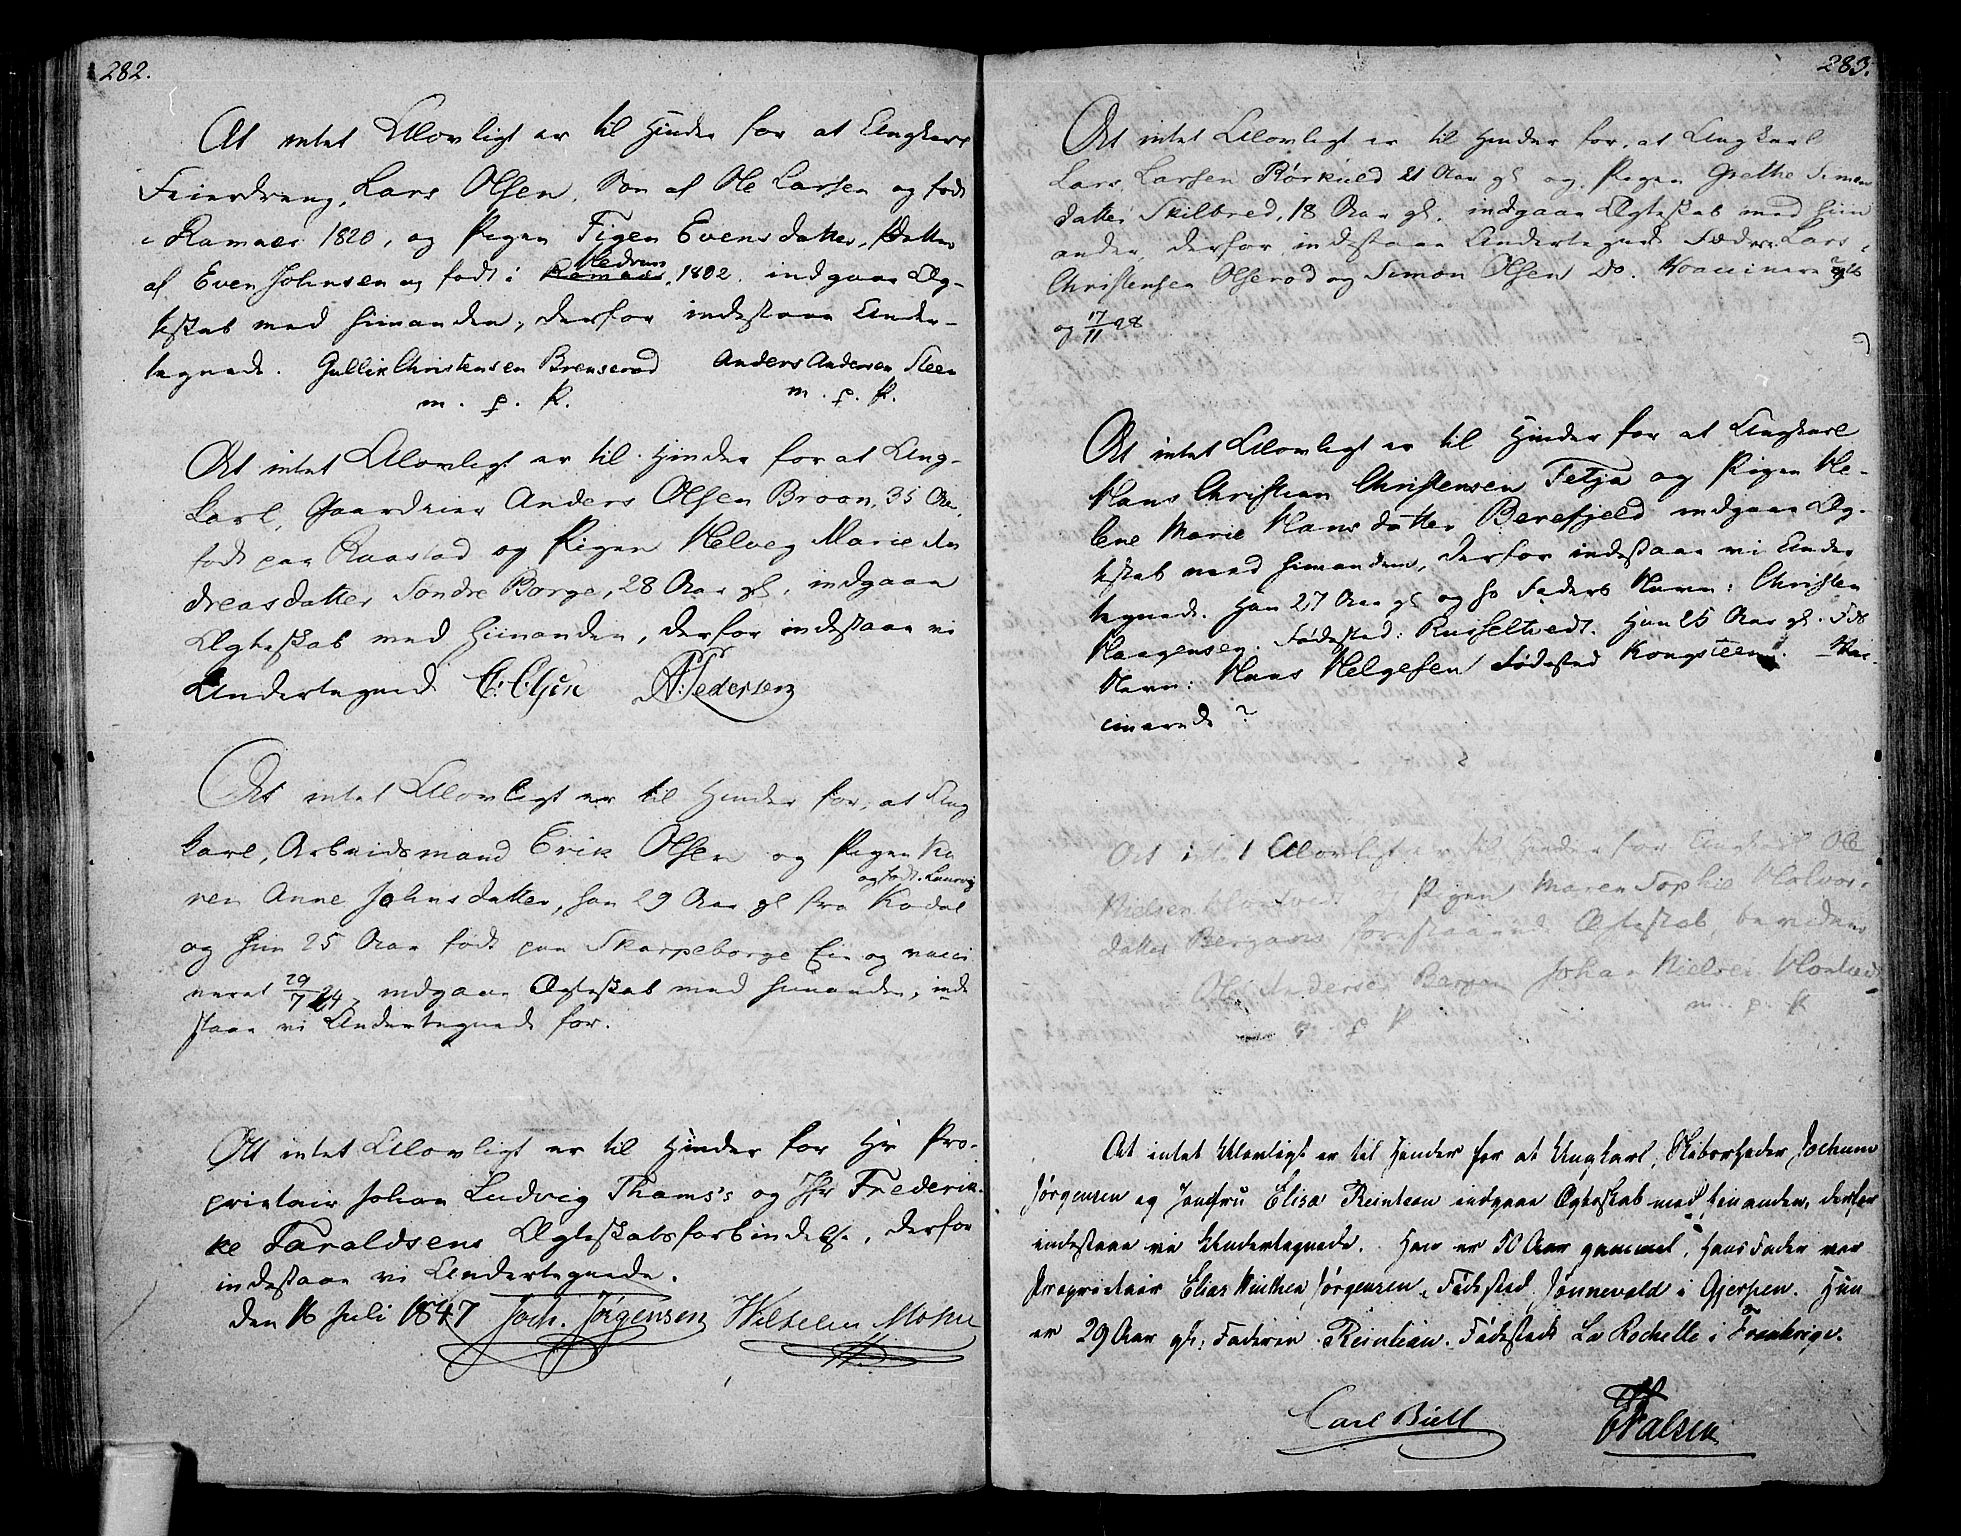 282.
At intet Ulovligt er til Hinder for at Ungkarl
Feierdreng, Lars Olsen, Søn af Ole Larsen og født
i Ramnes 1820, og Pigen Tigen Evensdatter, Datter
Hedrum
af Even Johnsen og født i Ramnæs, 1802. indgaae Æg-
teskab med hinanden, derfor indestaae Under-
tegnede. Gullik Christensen Brenserød Anders Andersen Steen
m. p. P. m. p. P.
At intet Ulovligt er til Hinder for at Ung-
karl, Gaardeier Anders Olsen Broon, 35 Aar,
født paa Raastad og Pigen Helveg Marie An
dreasdatter Sondre Borge, 28 Aar gl, indgaae
Ægteskab med hinanden, derfor indestaae vi
Undertegnede E. Olsen A. Pedersen
At intet Ulovligt er til Hinder for, at Ung
karl, Arbeidsmand Erik Olsen og Pigen Ka
og født. Laurvig
ren Anne Johnsdatter, han 29 Aar gl fra Kodal
og hun 25 Aar født paa Skarpeborge Eie og vacci
neret 29/7 24, indgaae Ægteskab med hinanden, inde
staae vi Undertegnede for.
At intet Ulovligt er til Hinder for Hr Pro-
prietair Johan Ludvig Thams's og Jfr Frederik-
ke Taraldsens Ægteskabsforbindelse, derfor
indestaae vi Undertegnede.
den 16 Juli 1847 Joch. Jørgensen Wilhelm Mohn
283.
At intet Ulovligt er til Hinder for, at Ungkarl
Lars Larsen Rørkuld 21 Aar gl og Pigen Grethe Simens
datter Skilbred, 18 Aar gl. indgaae Ægteskab med hin
anden, derfor indestaae Undertegnede Fædre: Lars
Christensen Olserød og Simon Olsen Do. Vaccinere
og 17/11 28
At intet Ulovligt er til Hinder for at Ungkarl
Hans Christian Christensen Fetja og Pigen He-
lene Marie Hansdatter Berefjeld indgaae Æg-
teskab med hinanden, derfor indestaae vi Under
tegnede. Han 27 Aar gl og hs Faders Navn: Christen
Haagensen. Fødested: Russeltvedt. Hun 25 Aar gl. Fds
Navn: Hans Helgesen Fødested Kongsteen. Vac-
cinerede?
At intet Ulovligt er til Hinder for Ungkarl Ole
Nielsen Hontvedt og Pigen Maren Sophie Halvors-
datter Bergans forestaaende Ægteskab, bevidne
Ole Andersen Bergan Johan Nielsen Hontvedt
m. p. P. m. p. P
At intet Ulovligt er til Hinder for at Ungkarl, Skibsrheder Jochum
Jørgensen og Jomfru Elisa Reintean indgaae Ægteskab med hinanden, derfor
indestaae vi Undertegnede. Han er 50 Aar gammel, hans Fader var
Proprietair Elias Winther Jørgensen, Fødested Jønnevald i Gjerpen. Hun
er 29 Aar gl; Faderen Reintean. Fødested La Rochelle i Frankrige.
Carl Bull Falsen